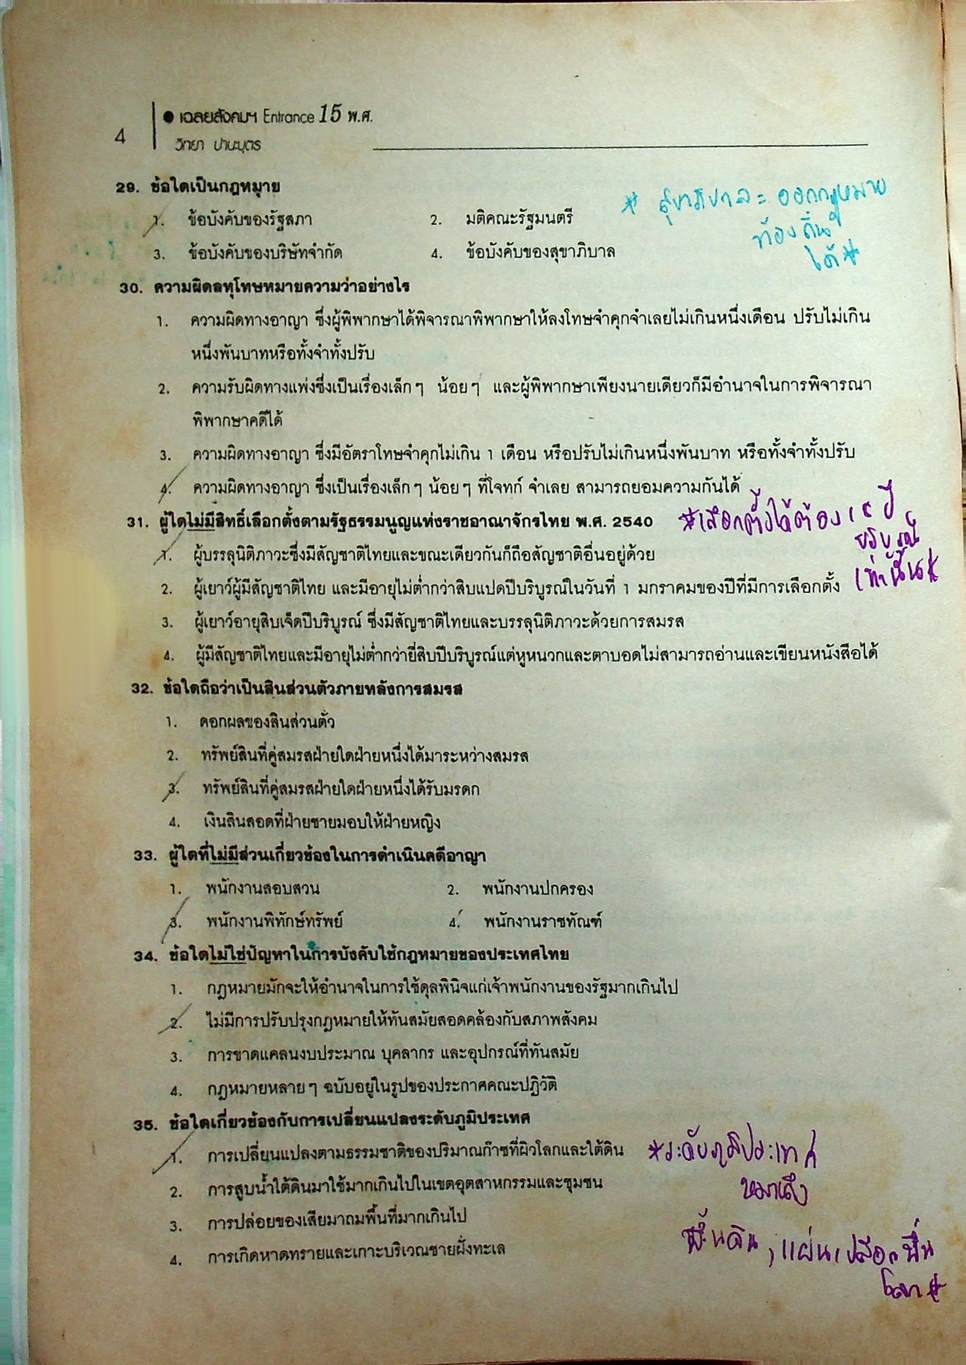 ● เฉลยสังคมฯ Entrance 15 พ.ศ.
4
วิทยา ปานะบุตร
29. ข้อใดเป็นกฎหมาย
1. ข้อบังคับของรัฐสภา 2. มติคณะรัฐมนตรี
3. ข้อบังคับของบริษัทจำกัด 4. ข้อบังคับของสุขาภิบาล
* สุขาภิบาล = ออกกฎหมาย
ท้องถิ่น
ได้ *
30. ความผิดลหุโทษหมายความว่าอย่างไร
1. ความผิดทางอาญา ซึ่งผู้พิพากษาได้พิจารณาพิพากษาให้ลงโทษจำคุกจำเลยไม่เกินหนึ่งเดือน ปรับไม่เกิน
หนึ่งพันบาทหรือทั้งจำทั้งปรับ
2. ความรับผิดทางแพ่งซึ่งเป็นเรื่องเล็กๆ น้อยๆ และผู้พิพากษาเพียงนายเดียวก็มีอำนาจในการพิจารณา
พิพากษาคดีได้
3. ความผิดทางอาญา ซึ่งมีอัตราโทษจำคุกไม่เกิน 1 เดือน หรือปรับไม่เกินหนึ่งพันบาท หรือทั้งจำทั้งปรับ
4. ความผิดทางอาญา ซึ่งเป็นเรื่องเล็กๆ น้อยๆ ที่โจทก์ จำเลย สามารถยอมความกันได้
31. ผู้ใดไม่มีสิทธิ์เลือกตั้งตามรัฐธรรมนูญแห่งราชอาณาจักรไทย พ.ศ. 2540
*เลือกตั้งได้ต้อง 18 ปี
บริบูรณ์
เท่านั้น*
1. ผู้บรรลุนิติภาวะซึ่งมีสัญชาติไทยและขณะเดียวกันก็ถือสัญชาติอื่นอยู่ด้วย
2. ผู้เยาว์ผู้มีสัญชาติไทย และมีอายุไม่ต่ำกว่าสิบแปดปีบริบูรณ์ในวันที่ 1 มกราคมของปีที่มีการเลือกตั้ง
3. ผู้เยาว์อายุสิบเจ็ดปีบริบูรณ์ ซึ่งมีสัญชาติไทยและบรรลุนิติภาวะด้วยการสมรส
4. ผู้มีสัญชาติไทยและมีอายุไม่ต่ำกว่ายี่สิบปีบริบูรณ์แต่หูหนวกและตาบอดไม่สามารถอ่านและเขียนหนังสือได้
32. ข้อใดถือว่าเป็นสินส่วนตัวภายหลังการสมรส
1. ดอกผลของสินส่วนตัว
2. ทรัพย์สินที่คู่สมรสฝ่ายใดฝ่ายหนึ่งได้มาระหว่างสมรส
3. ทรัพย์สินที่คู่สมรสฝ่ายใดฝ่ายหนึ่งได้รับมรดก
4. เงินสินสอดที่ฝ่ายชายมอบให้ฝ่ายหญิง
33. ผู้ใดที่ไม่มีส่วนเกี่ยวข้องในการดำเนินคดีอาญา
1. พนักงานสอบสวน 2. พนักงานปกครอง
3. พนักงานพิทักษ์ทรัพย์ 4. พนักงานราชทัณฑ์
34. ข้อใดไม่ใช่ปัญหาในการบังคับใช้กฎหมายของประเทศไทย
1. กฎหมายมักจะให้อำนาจในการใช้ดุลพินิจแก่เจ้าพนักงานของรัฐมากเกินไป
2. ไม่มีการปรับปรุงกฎหมายให้ทันสมัยสอดคล้องกับสภาพสังคม
3. การขาดแคลนงบประมาณ บุคลากร และอุปกรณ์ที่ทันสมัย
4. กฎหมายหลายๆ ฉบับอยู่ในรูปของประกาศคณะปฏิวัติ
35. ข้อใดเกี่ยวข้องกับการเปลี่ยนแปลงระดับภูมิประเทศ
1. การเปลี่ยนแปลงตามธรรมชาติของปริมาณก๊าซที่ผิวโลกและใต้ดิน
2. การสูบน้ำใต้ดินมาใช้มากเกินไปในเขตอุตสาหกรรมและชุมชน
3. การปล่อยของเสียมาถมพื้นที่มากเกินไป
4. การเกิดหาดทรายและเกาะบริเวณชายฝั่งทะเล
*ระดับภูมิประเทศ
หมายถึง
พื้นดิน, แผ่นเปลือกพื้น
โลก *